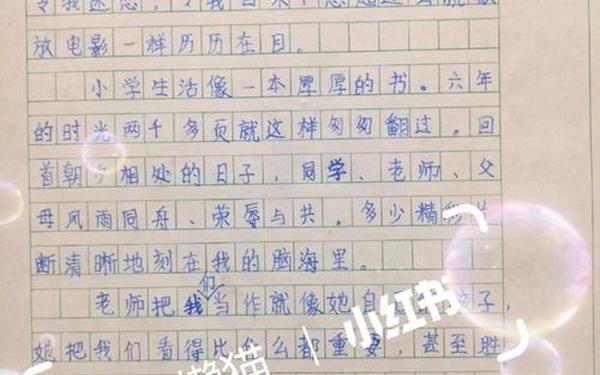 放电影一样历历在目。
小学生活像一本厚厚的书。六年
的时光两千多页就这样匆匆翻过。回
首朝夕相处的日子，同学、老师、父
母风雨同舟、荣辱与共。多少精彩片
断清晰地刻在我的脑海里。
老师把我们当作就像她自己的孩子，
她把我们看得比什么都重要，甚至胜
小红书